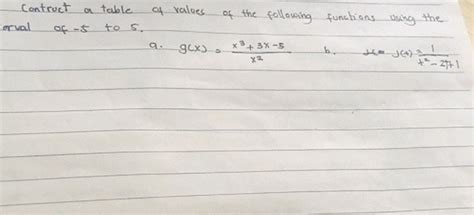 Contruct a table of values of the following functions using the
erval of -5 to 5.
a. g(x) = x³ + 3x - 5 / x² b. J(t) = 1 / t² - 2t + 1